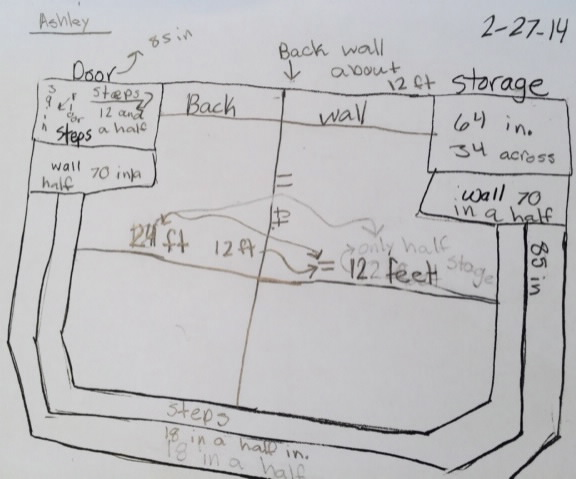 Ashley
2-27-14
85 in
Door
Back wall
about
12 ft
storage
steps
12 and
a half
steps
Back
wall
64 in.
34 across
wall
half
70 in
wall 70
in a half
24 ft
12 ft
= 12 feet
only half
stage
85 in
steps
18 in a half in.
18 in a half